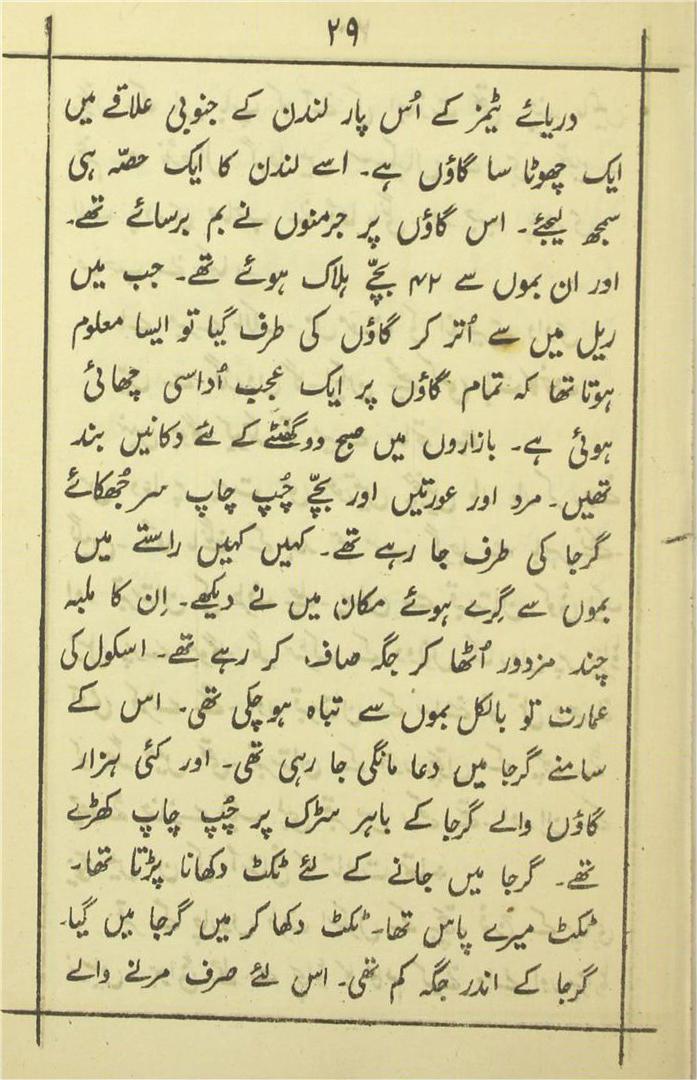 ۲۹
دریائے ٹیمز کے اُس پار لندن کے جنوبی علاقے میں
ایک چھوٹا سا گاؤں ہے۔ اسے لندن کا ایک حصّہ ہی
سمجھ لیجئے۔ اس گاؤں پر جرمنوں نے بم برسائے تھے۔
اور ان بموں سے ۴۲ بچّے ہلاک ہوئے تھے۔ جب میں
ریل میں سے اُتر کر گاؤں کی طرف گیا تو ایسا معلوم
ہوتا تھا کہ تمام گاؤں پر ایک عجب اُداسی چھائی
ہوئی ہے۔ بازاروں میں صبح دو گھنٹے کے لئے دکانیں بند
تھیں۔ مرد اور عورتیں اور بچّے چُپ چاپ سر جُھکائے
گرجا کی طرف جا رہے تھے۔ کہیں کہیں راستے میں
بموں سے گِرے ہوئے مکان میں نے دیکھے۔ اِن کا ملبہ
چند مزدور اُٹھا کر جگہ صاف کر رہے تھے۔ اسکول کی
عمارت تو بالکل بموں سے تباہ ہو چکی تھی۔ اس کے
سامنے گرجا میں دعا مانگی جا رہی تھی۔ اور کئی ہزار
گاؤں والے گرجا کے باہر سڑک پر چُپ چاپ کھڑے
تھے۔ گرجا میں جانے کے لئے ٹکٹ دکھانا پڑتا تھا۔
ٹکٹ میرے پاس تھا۔ ٹکٹ دکھا کر میں گرجا میں گیا۔
گرجا کے اندر جگہ کم تھی۔ اس لئے صرف مرنے والے